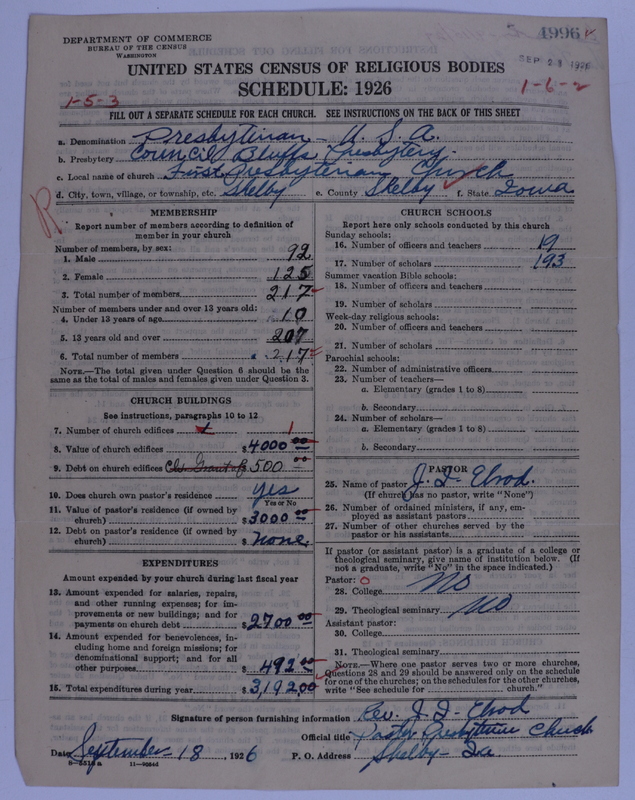 DEPARTMENT OF COMMERCE
BUREAU OF THE CENSUS
WASHINGTON
1996
SEP 21 1926
UNITED STATES CENSUS OF RELIGIOUS BODIES
SCHEDULE: 1926
1-5-3
1-6-2
FILL OUT A SEPARATE SCHEDULE FOR EACH CHURCH. SEE INSTRUCTIONS ON THE BACK OF THIS SHEET
a. Denomination Presbyterian - U.S.A.
b. Presbytery Council Bluffs Presbytery.
c. Local name of church First Presbyterian Church
d. City, town, village, or township, etc. Shelby e. County Shelby f. State Iowa
R
MEMBERSHIP
Report number of members according to definition of
member in your church
Number of members, by sex:
1. Male 92
2. Female 125
3. Total number of members 217
Number of members under and over 13 years old:
4. Under 13 years of age 10
5. 13 years old and over 207
6. Total number of members 217
NOTE.—The total given under Question 6 should be the
same as the total of males and females given under Question 3.
CHURCH BUILDINGS
See instructions, paragraphs 10 to 12
7. Number of church edifices 1 1
8. Value of church edifices $4000 00
9. Debt on church edifices Ch. Grant of 500 00
10. Does church own pastor's residence yes
Yes or No
11. Value of pastor's residence (if owned by
church) $3000 00
12. Debt on pastor's residence (if owned by
church) $none.
EXPENDITURES
Amount expended by your church during last fiscal year
13. Amount expended for salaries, repairs,
and other running expenses; for im-
provements or new buildings; and for
payments on church debt $2700 00
14. Amount expended for benevolences, in-
cluding home and foreign missions; for
denominational support; and for all
other purposes $492 00
15. Total expenditures during year $3,192 00
CHURCH SCHOOLS
Report here only schools conducted by this church
Sunday schools:
16. Number of officers and teachers 19
17. Number of scholars 193
Summer vacation Bible schools:
18. Number of officers and teachers
19. Number of scholars
Week-day religious schools:
20. Number of officers and teachers
21. Number of scholars
Parochial schools:
22. Number of administrative officers
23. Number of teachers—
a. Elementary (grades 1 to 8)
b. Secondary
24. Number of scholars—
a. Elementary (grades 1 to 8)
b. Secondary
PASTOR
25. Name of pastor J. I. Elrod.
(If church has no pastor, write "None")
26. Number of ordained ministers, if any, em-
ployed as assistant pastors
27. Number of other churches served by the
pastor or his assistants
If pastor (or assistant pastor) is a graduate of a college or
theological seminary, give name of institution below. (If
not a graduate, write "No" in the space indicated.)
Pastor: O
28. College No
29. Theological seminary No
Assistant pastor:
30. College
31. Theological seminary
NOTE.—Where one pastor serves two or more churches,
Questions 28 and 29 should be answered only on the schedule
for one of the churches; on the schedules for the other churches,
write "See schedule for church."
Signature of person furnishing information Rev. J. I. Elrod
Official title Pastor Presbyterian Church
Date September 18, 1926 P. O. Address Shelby - Ia